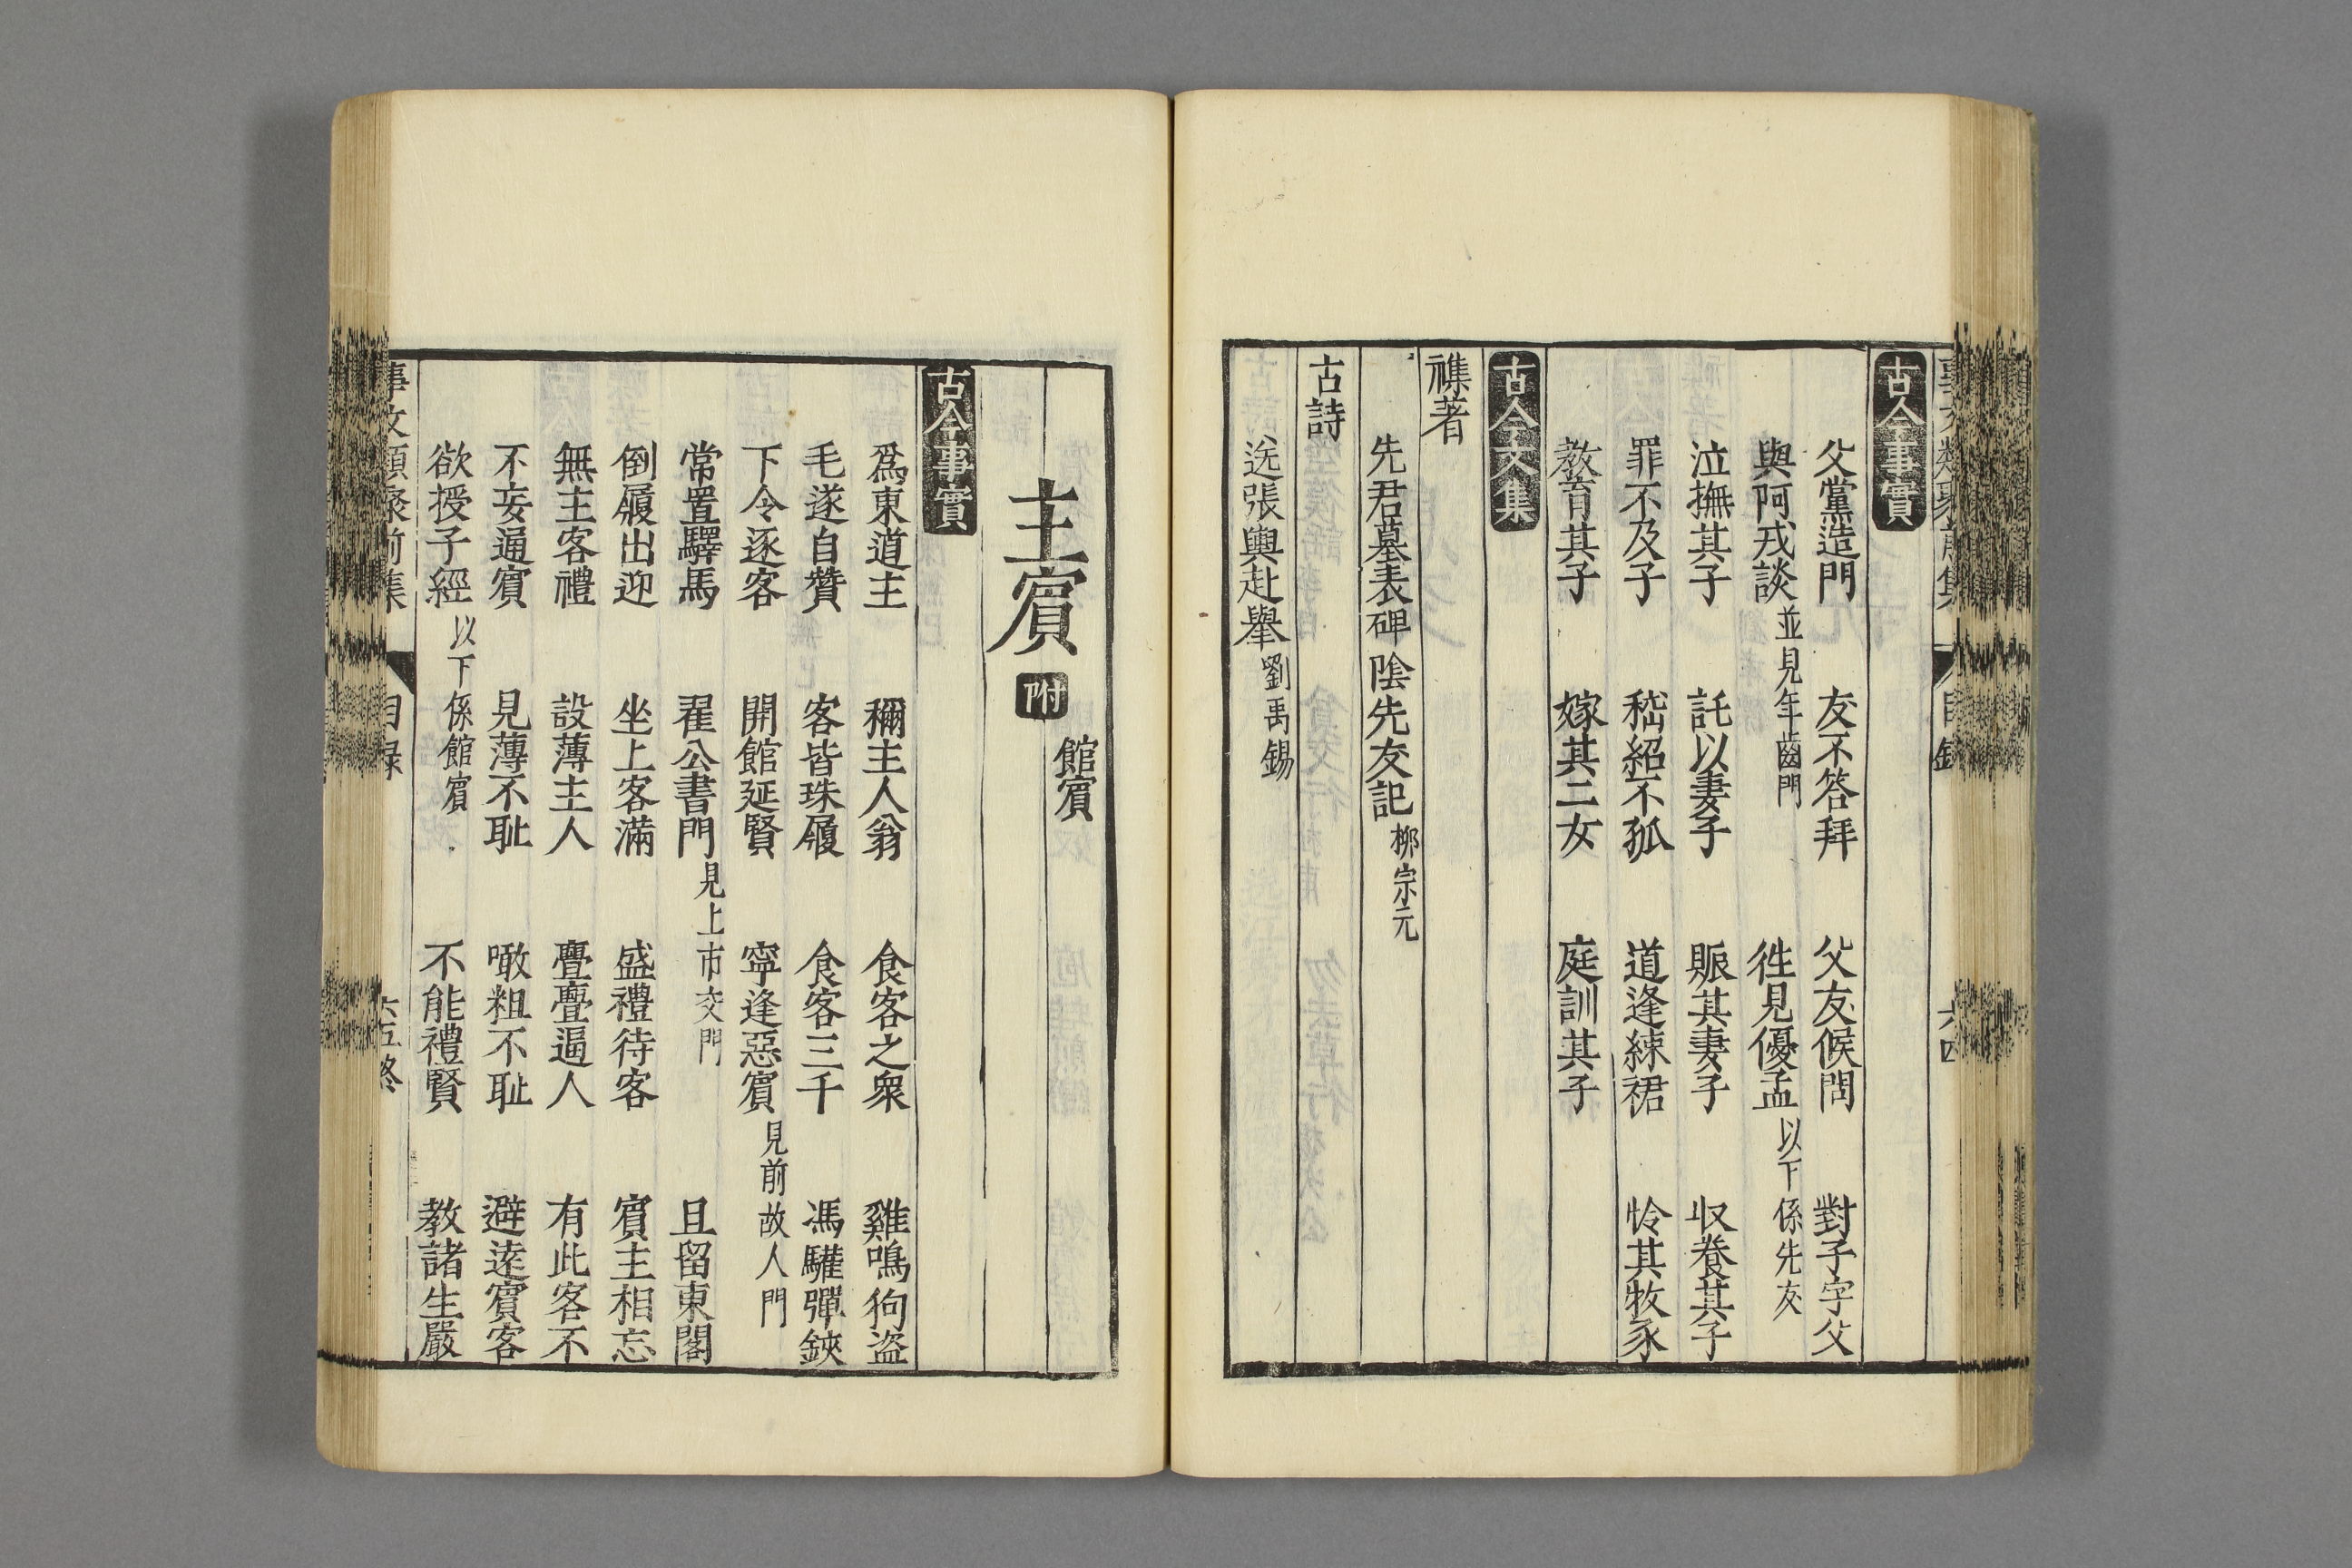 古今事實
父黨造門　友不答拜　父友候問　對子字父
與阿戎談並見年齒門　徃見優孟以下係先友
泣撫其子　託以妻子　賑其妻子　収養其子
罪不及子　嵇紹不孤　道逢練裙　怜其牧豕
教育其子　嫁其二女　庭訓其子
古今文集
襍著
先君墓表碑陰先友記栁宗元
古詩
送張輿赴舉劉禹錫
館賔
主賔附
古今事實
爲東道主　稱主人翁　食客之衆　雞鳴狗盗
毛遂自贊　客皆珠履　食客三千　馮驩彈鋏
下令逐客　開館延賢　寧逢惡賔見前故人門
常置驛馬　翟公書門見上市交門　且留東閣
倒履出迎　坐上客滿　盛禮待客　賔主相忘
無主客禮　設薄主人　亹亹逼人　有此客不
不妄通賔　見薄不耻　噉粗不耻　避逺賔客
欲授子經以下係館賔　不能禮賢　教諸生嚴
事文類聚前集　目録　六五終